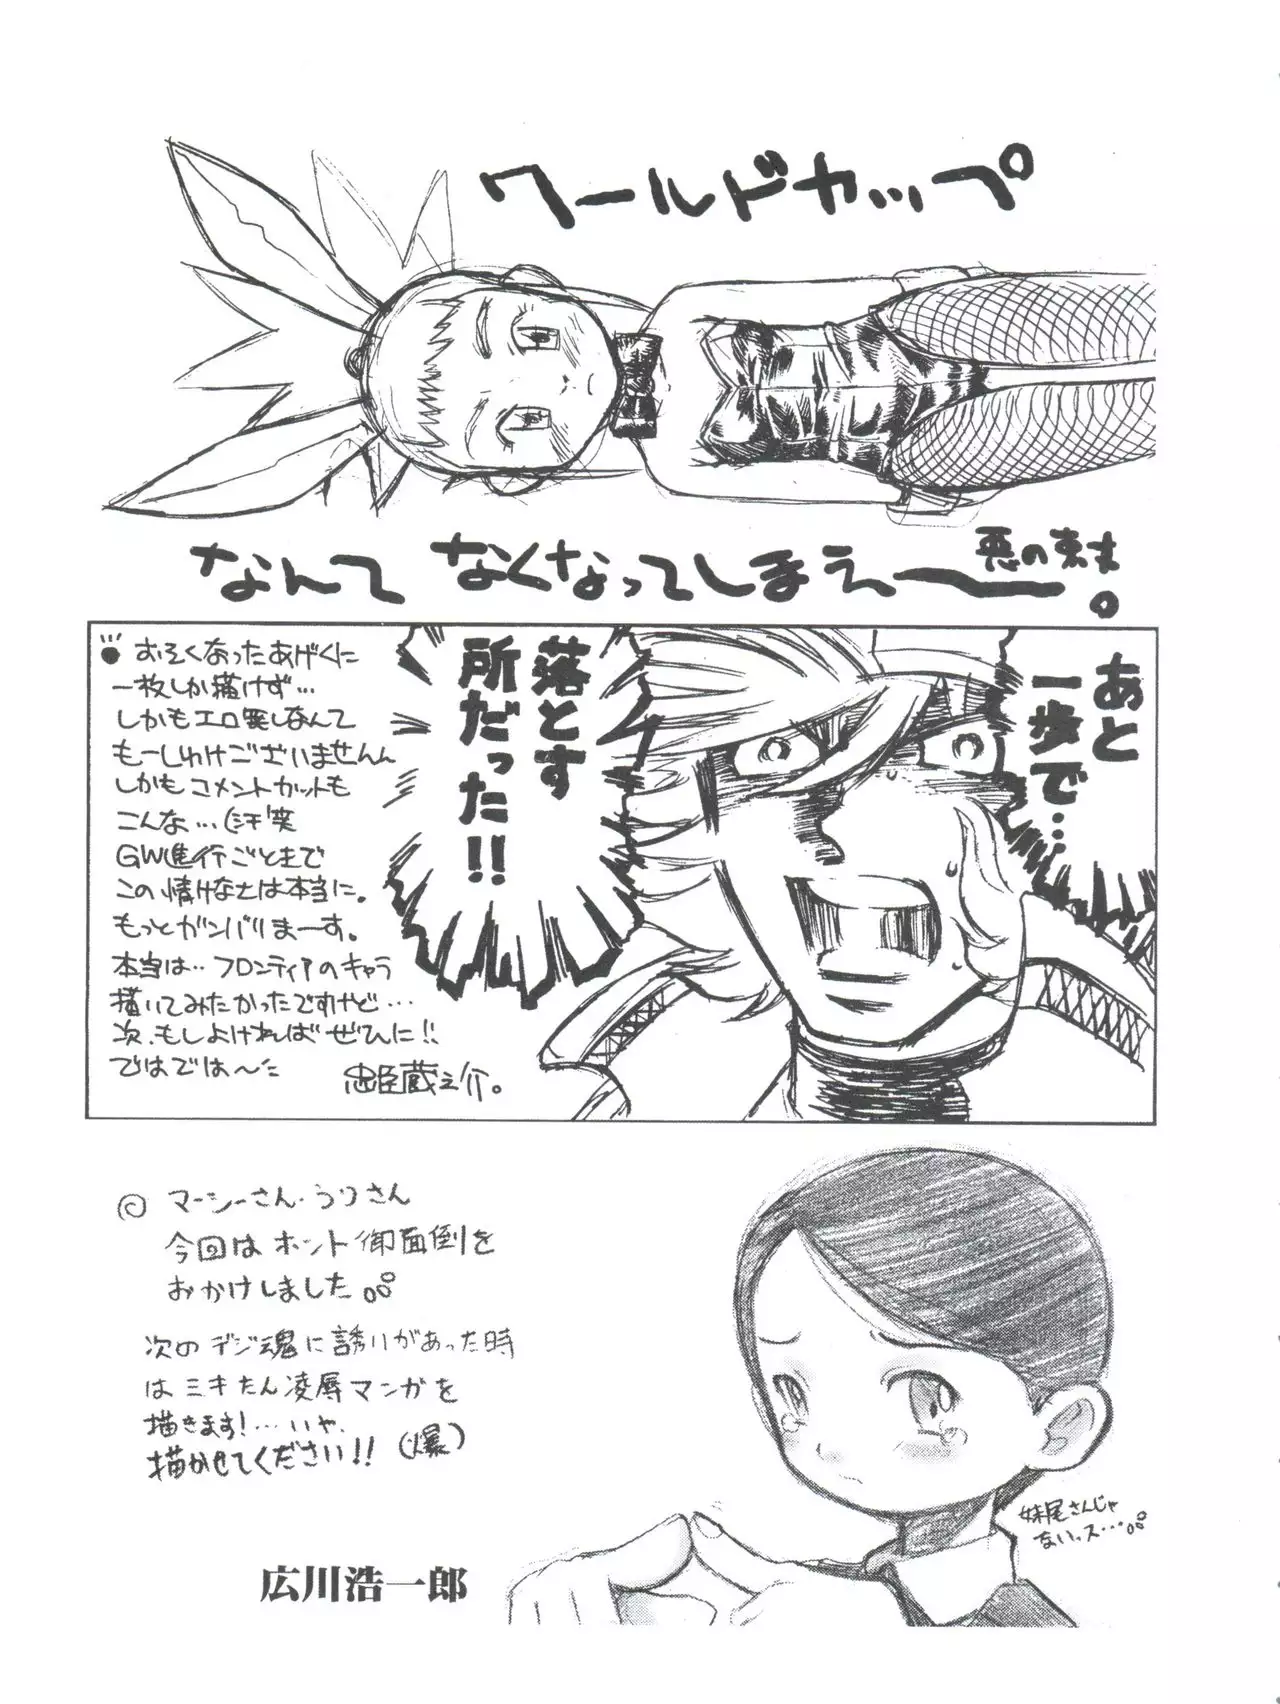 ワールドカップ
なんて なくなってしまえー。
悪の
あと
一歩で…
落とす
所だった!!
おそくなったあげくに
一枚しか描けず…
しかもエロ無しなんて
もーしわけございませんん
しかもコメントカットも
こんな…(汗笑
GW進行ごときで
この情けなさは本当に。
もっとガンバリまーす。
本当は‥フロンティアのキャラ
描いてみたかったですけど…
次、もしよければぜひに!!
ではでは〜た
忠臣蔵之介。
◎マーシーさん・うりさん
今回はホント御面倒を
おかけしました
次のデジ魂に誘いがあった時
はミキたん凌辱マンガを
描きます!…いや、
描かせてください!!(爆)
妹尾さんじゃ
ないっス…
広川浩一郎